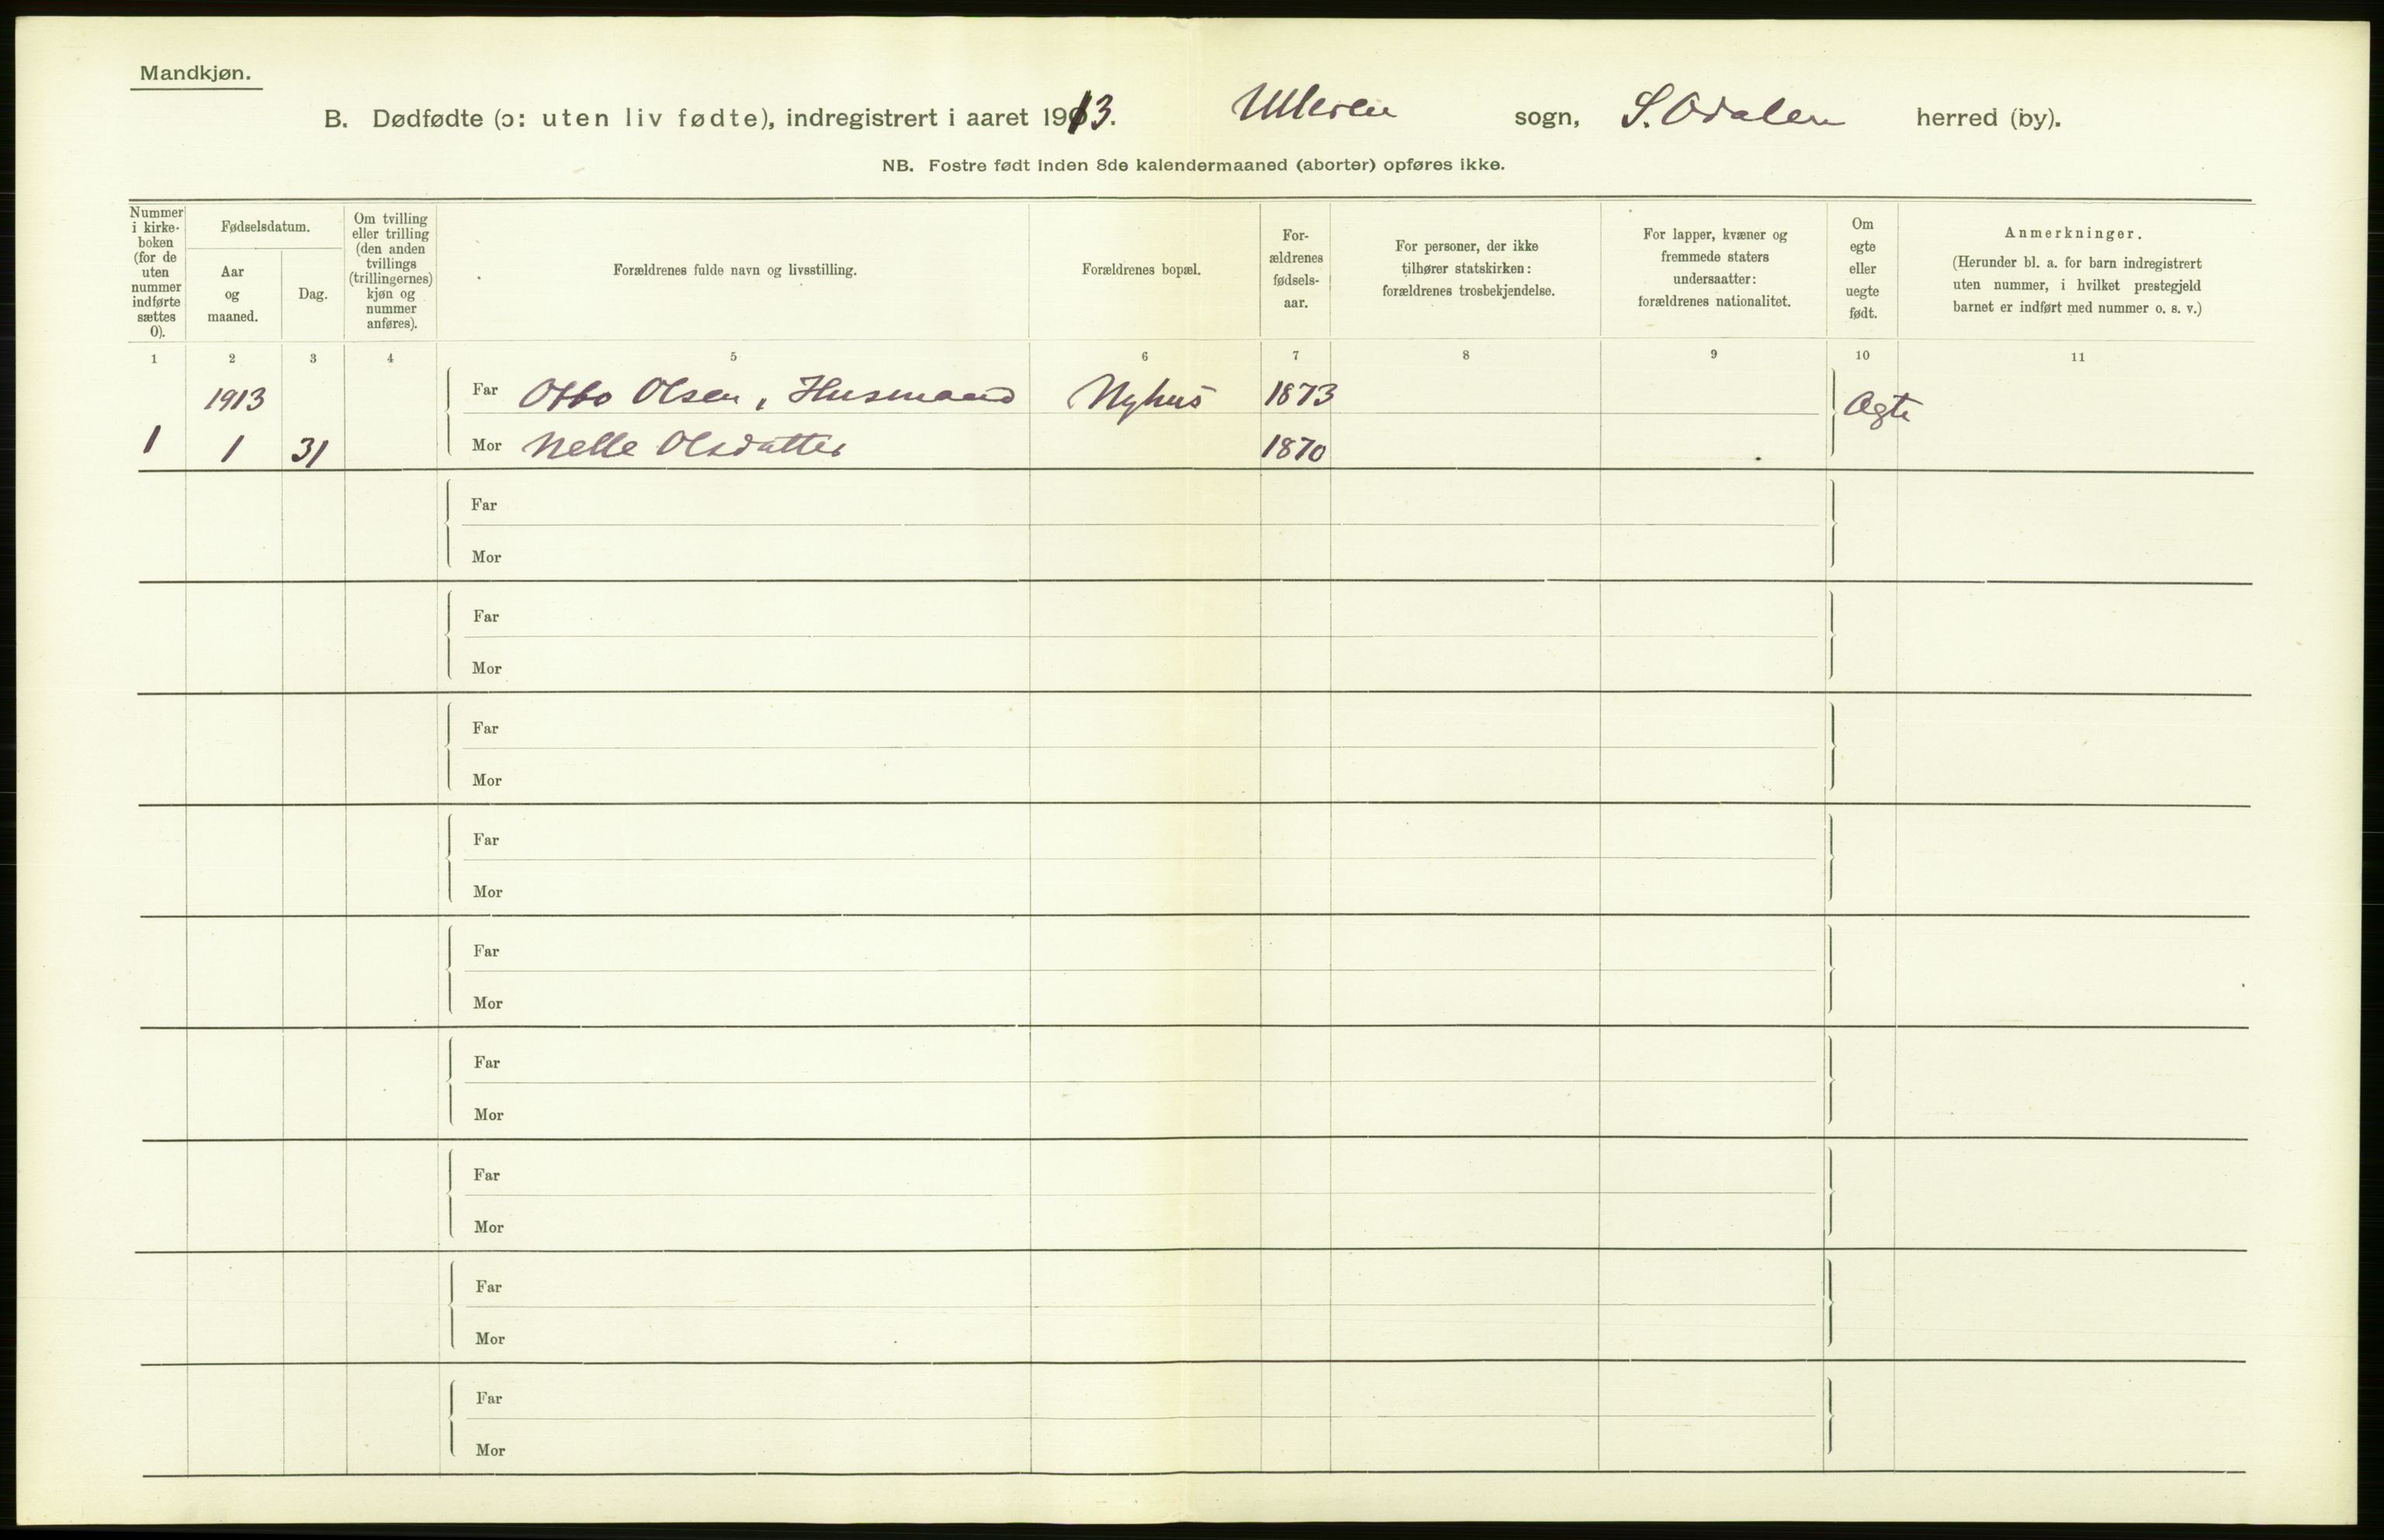 Mandkjøn.
B. Dødfødte (ɔ: uten liv fødte), indregistrert i aaret 1913. Ulleren sogn, S. Odalen herred (by).
NB. Fostre født inden 8de kalendermaaned (aborter) opføres ikke.
Nummer
i kirke-
boken
(for de
uten
nummer
indførte
sættes
0).
Fødselsdatum.
Aar
og
maaned.
Dag.
Om tvilling
eller trilling
(den anden
tvillings
(trillingernes)
kjøn og
nummer
anføres).
Forældrenes fulde navn og livsstilling.
Forældrenes bopæl.
For-
ældrenes
fødsels-
aar.
For personer, der ikke
tilhører statskirken:
forældrenes trosbekjendelse.
For lapper, kvæner og
fremmede staters
undersaatter:
forældrenes nationalitet.
Om
egte
eller
uegte
født.
Anmerkninger.
(Herunder bl. a. for barn indregistrert
uten nummer, i hvilket prestegjeld
barnet er indført med nummer o. s. v.)
1 2 3 4 5 6 7 8 9 10 11
1913 Far Otto Olsen, Husmand Nyhus 1873 Ægte
1 1 31 Mor Nelle Olsdatter 1870
Far
Mor
Far
Mor
Far
Mor
Far
Mor
Far
Mor
Far
Mor
Far
Mor
Far
Mor
Far
Mor